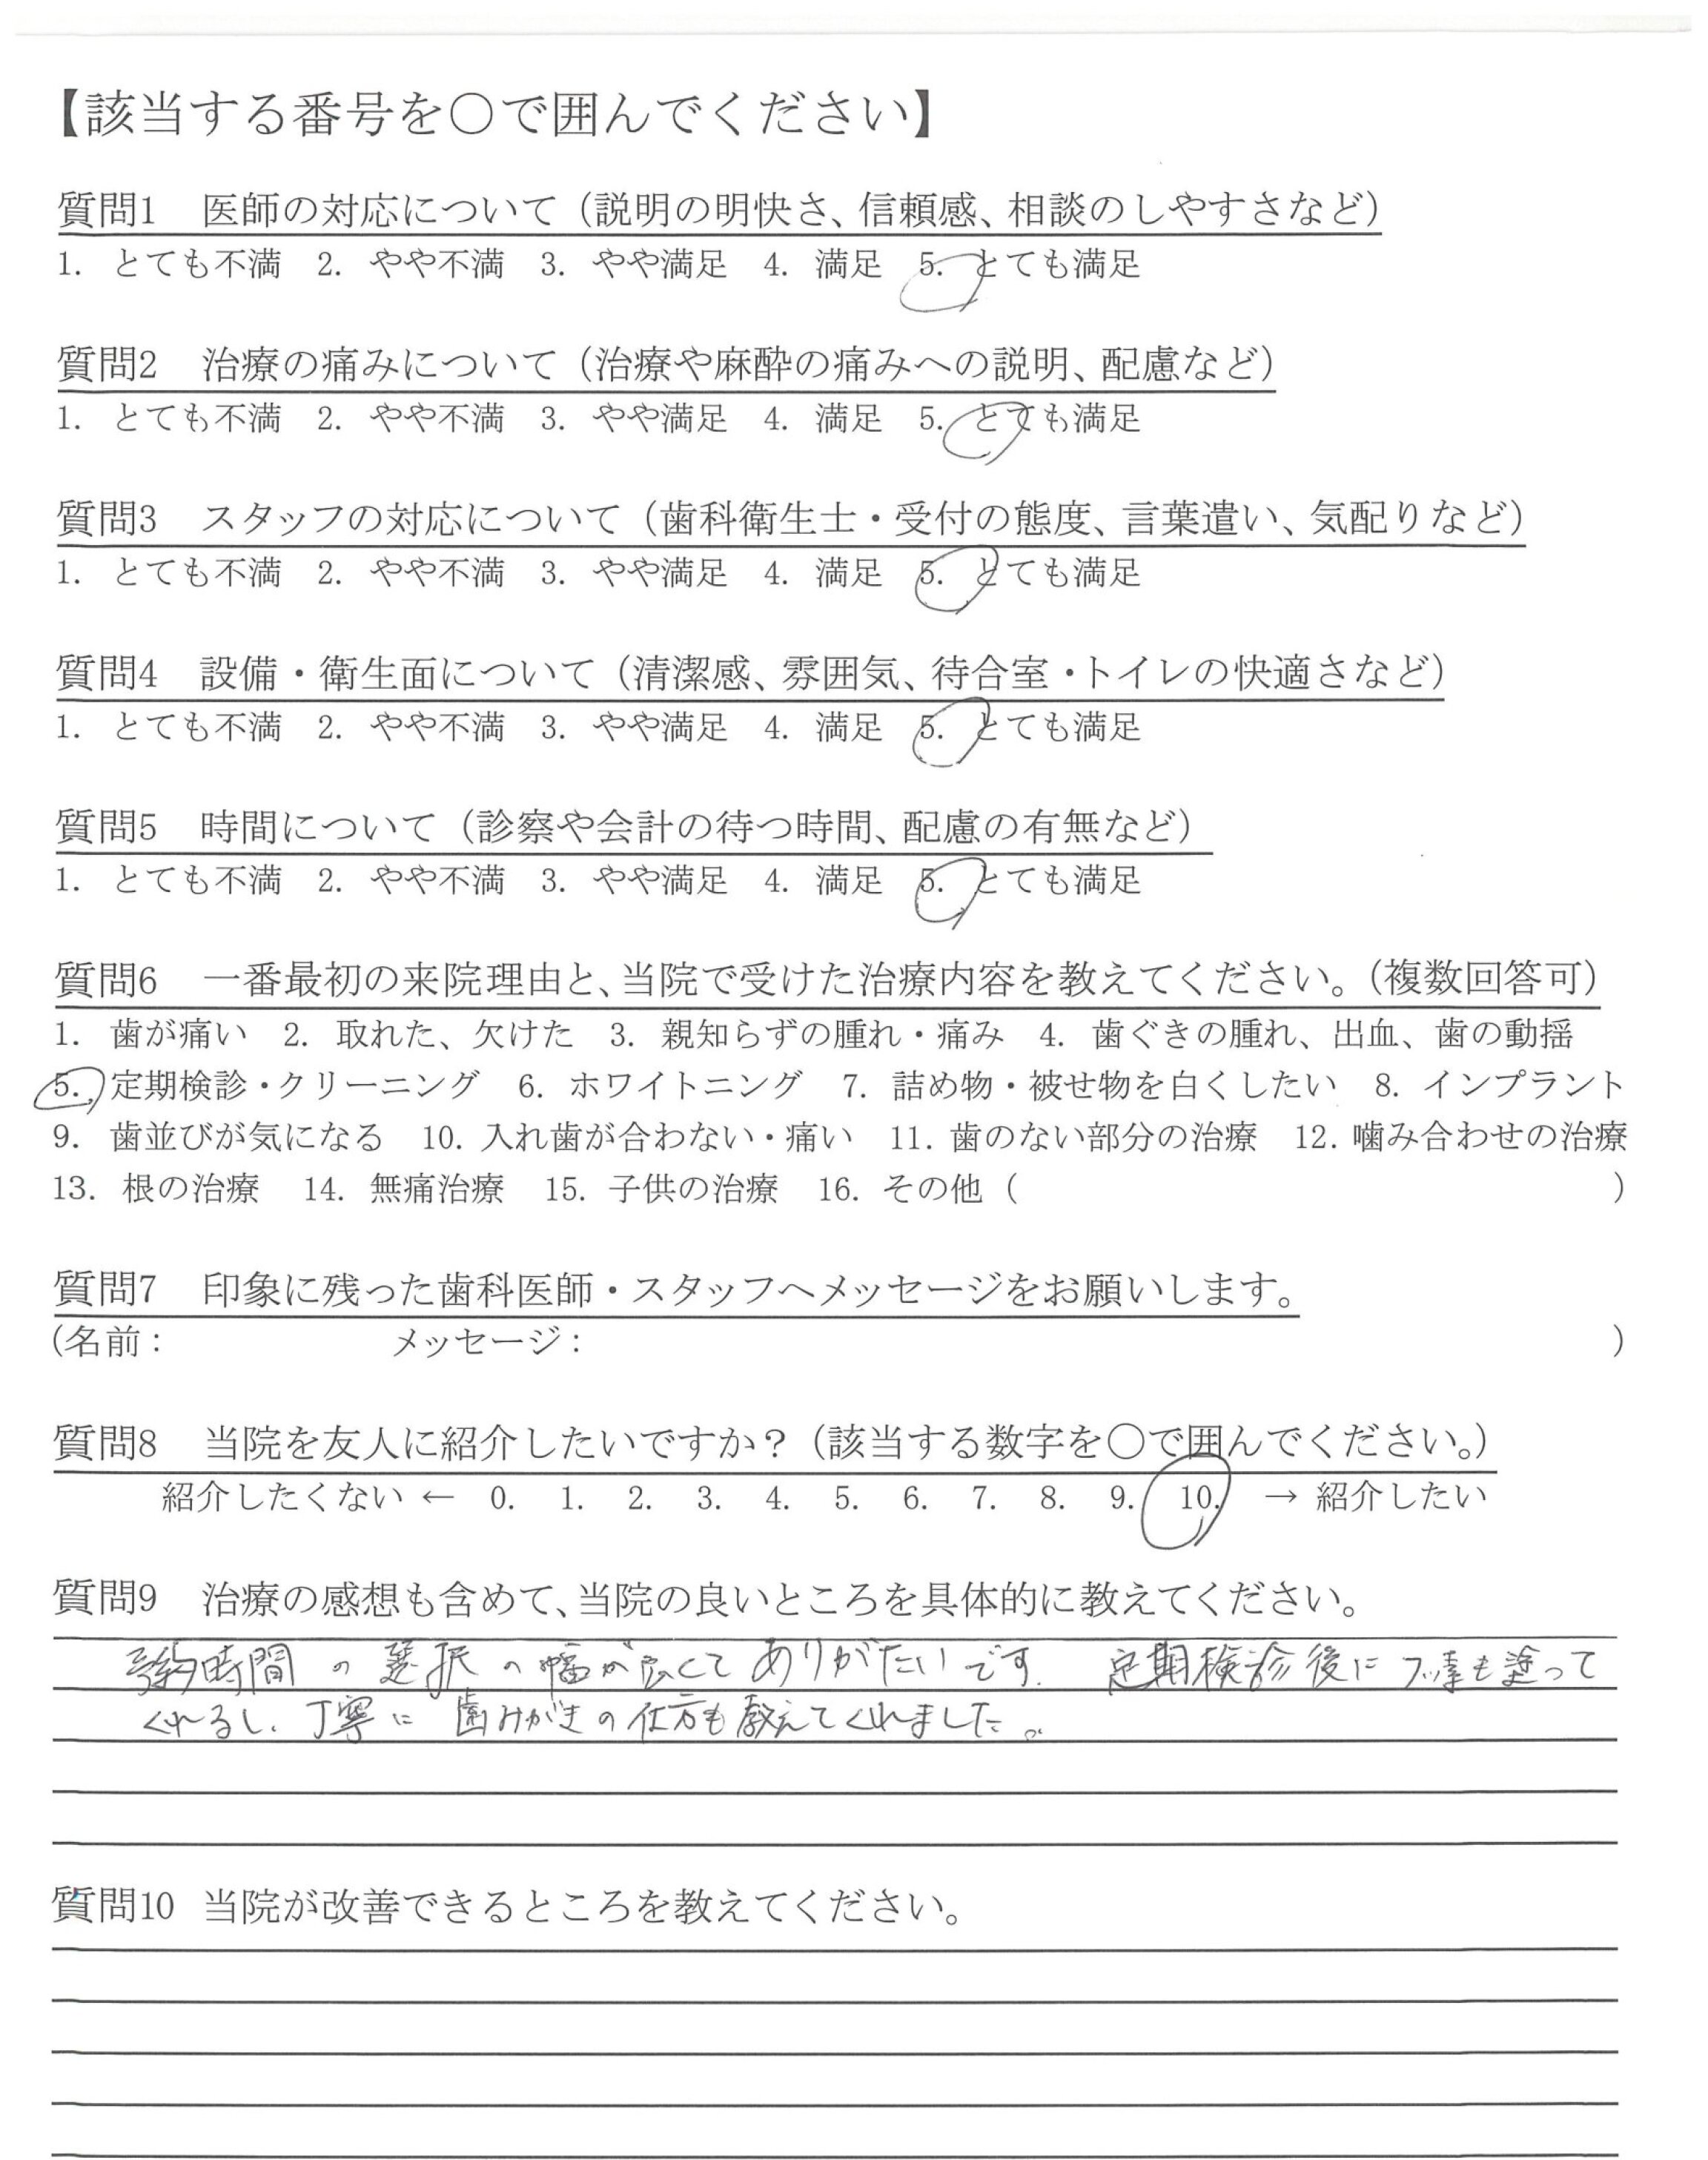 【該当する番号を○で囲んでください】
質問1　医師の対応について（説明の明快さ、信頼感、相談のしやすさなど）
1. とても不満　2. やや不満　3. やや満足　4. 満足　5. とても満足
質問2　治療の痛みについて（治療や麻酔の痛みへの説明、配慮など）
1. とても不満　2. やや不満　3. やや満足　4. 満足　5. とても満足
質問3　スタッフの対応について（歯科衛生士・受付の態度、言葉遣い、気配りなど）
1. とても不満　2. やや不満　3. やや満足　4. 満足　5. とても満足
質問4　設備・衛生面について（清潔感、雰囲気、待合室・トイレの快適さなど）
1. とても不満　2. やや不満　3. やや満足　4. 満足　5. とても満足
質問5　時間について（診察や会計の待つ時間、配慮の有無など）
1. とても不満　2. やや不満　3. やや満足　4. 満足　5. とても満足
質問6　一番最初の来院理由と、当院で受けた治療内容を教えてください。（複数回答可）
1. 歯が痛い　2. 取れた、欠けた　3. 親知らずの腫れ・痛み　4. 歯ぐきの腫れ、出血、歯の動揺
5. 定期検診・クリーニング　6. ホワイトニング　7. 詰め物・被せ物を白くしたい　8. インプラント
9. 歯並びが気になる　10. 入れ歯が合わない・痛い　11. 歯のない部分の治療　12. 噛み合わせの治療
13. 根の治療　14. 無痛治療　15. 子供の治療　16. その他（　　　）
質問7　印象に残った歯科医師・スタッフへメッセージをお願いします。
（名前：　　　メッセージ：　　　）
質問8　当院を友人に紹介したいですか？（該当する数字を○で囲んでください。）
紹介したくない ← 0. 1. 2. 3. 4. 5. 6. 7. 8. 9. 10. → 紹介したい
質問9　治療の感想も含めて、当院の良いところを具体的に教えてください。
予約時間の選択の幅が広くてありがたいです。定期検診後にフッ素も塗って
くれるし、丁寧に歯みがきの仕方も教えてくれました。
質問10 当院が改善できるところを教えてください。